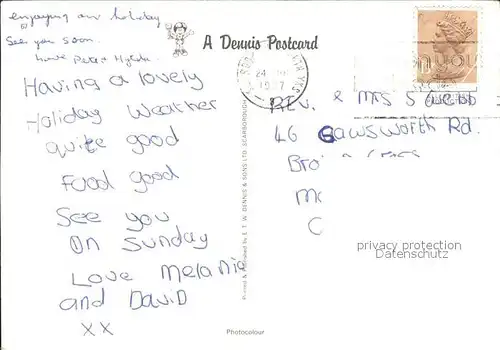 enjoying our holiday
See you soon.
love Peter
Having a lovely
Holiday Weather
quite good
food good
See you
On Sunday
Love Melanie
and David
xx
A Dennis Postcard
24
REV. & Mrs S
46 Gawsworth Rd.
Printed & Published by E. T. W. DENNIS & SONS LTD. SCARBOROUGH
privacy protection
Datenschutz
Photocolour